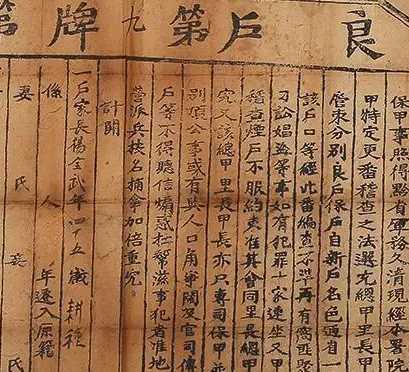 良戶第九牌第
保甲事照得黔省軍務久清現經本署院
甲特定更番稽查之法選充總甲里長甲
營束分別良戶保戶自新戶名色通省一
該戶口等經此番編查不準再有窩匪聚
刁訟娼盜等事如有犯罪十家連坐又甲
稽查煙戶不服約束准其會同里長總甲
究又該總甲里長甲長亦只專司保甲并
別項公事或有與人口角爭鬧及官司傳
戶等不得聽信煽惑社幫滋事犯者准地
營派兵按名捕拿加倍重究
計開
一戶家長楊全武年四十五歲耕種
係 人 年遷入原籍
妻 氏 妾 氏